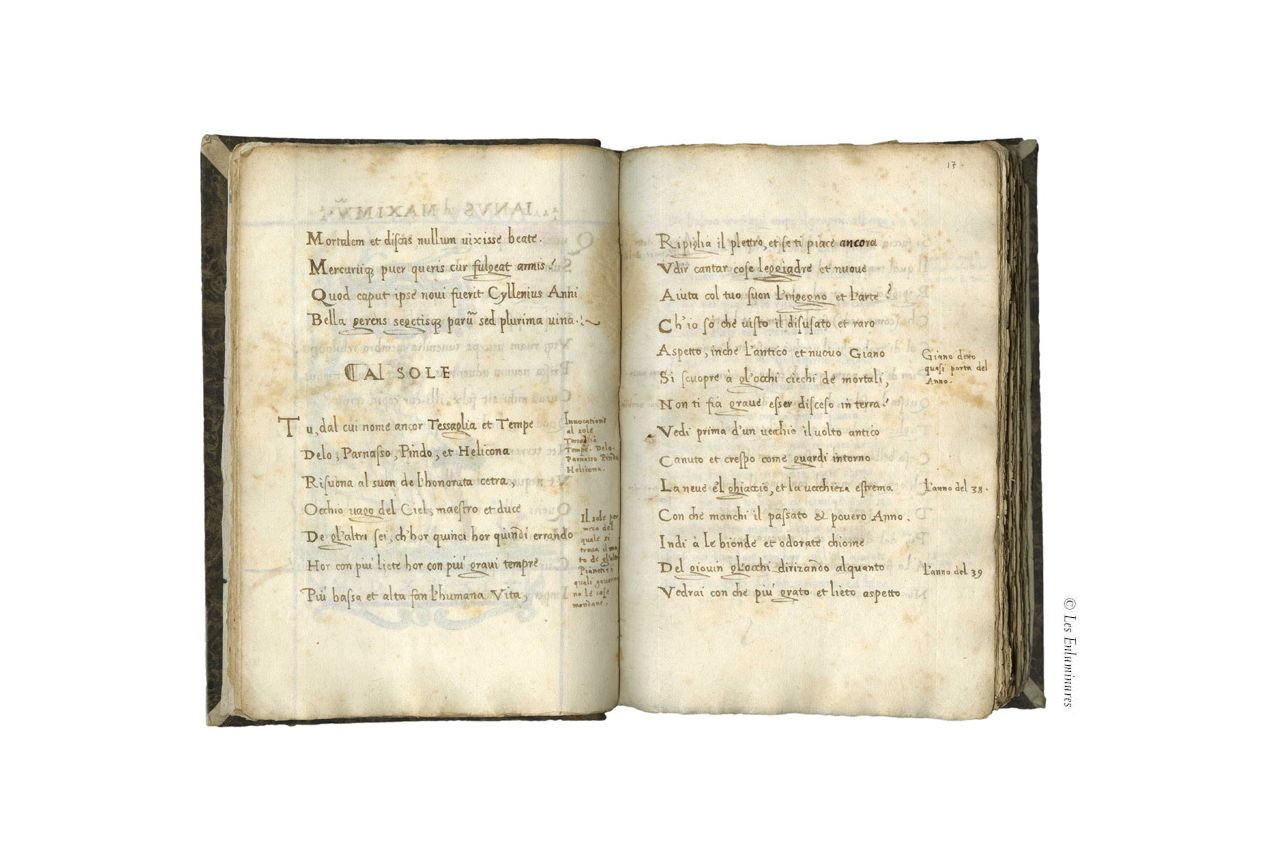 Mortalem et discas nullum uixisse beate.
Mercuriiq; puer queris cur fulgeat armis?
Quod caput ipse noui fuerit Cyllenius Anni
Bella gerens segetisq; parū sed plurima uina.
AL SOLE
Tu, dal cui nome ancor Tessaglia et Tempe
Delo, Parnasso, Pindo, et Helicona
Risuona al suon de l'honorata cetra,
Occhio uago del Ciel, maestro et duce
De gl'altri sei, ch'hor quinci hor quindi errando
Hor con piu' liete hor con piu' graui tempre
Piu' bassa et alta fan l'humana Vita,
Innocatione
al sole
Tessaglia
Tempe. Delo.
Parnasso Pindo
Helicona.
Il sole per
mezo del
quale si
troua il mo
to de gl'altri
Pianeti i
quali gouerna
no le cose
mondane.
17
Ripiglia il plettro, et se ti piace ancora
Vdir cantar cose leggiadre et nuoue
Aiuta col tuo suon l'ingegno et l'arte?
Ch'io so che uisto il disusato et raro
Aspetto, inche l'antico et nuouo Giano
Si scuopre à gl'occhi ciechi de mortali,
Non ti fia graue esser disceso in terra?
Vedi prima d'un uecchio il uolto antico
Canuto et crespo come guardi intorno
La neue el ghiaccio, et la uecchieza estrema
Con che manchi il passato & pouero Anno.
Indi à le bionde et odorate chiome
Del giouin gl'occhi dirizando alquanto
Vedrai con che piu' grato et lieto aspetto
Giano detto
quasi porta del
Anno.
L'anno del 38.
L'anno del 39
© Les Enluminures